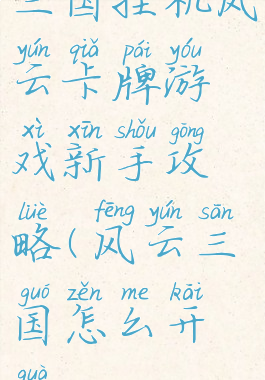 三国挂机风
yún qiǎ pái yóu
云卡牌游
xì xīn shǒu gōng
戏新手攻
lüè fēng yún sān
略(风云三
guó zěn me kāi
国怎么开
guà